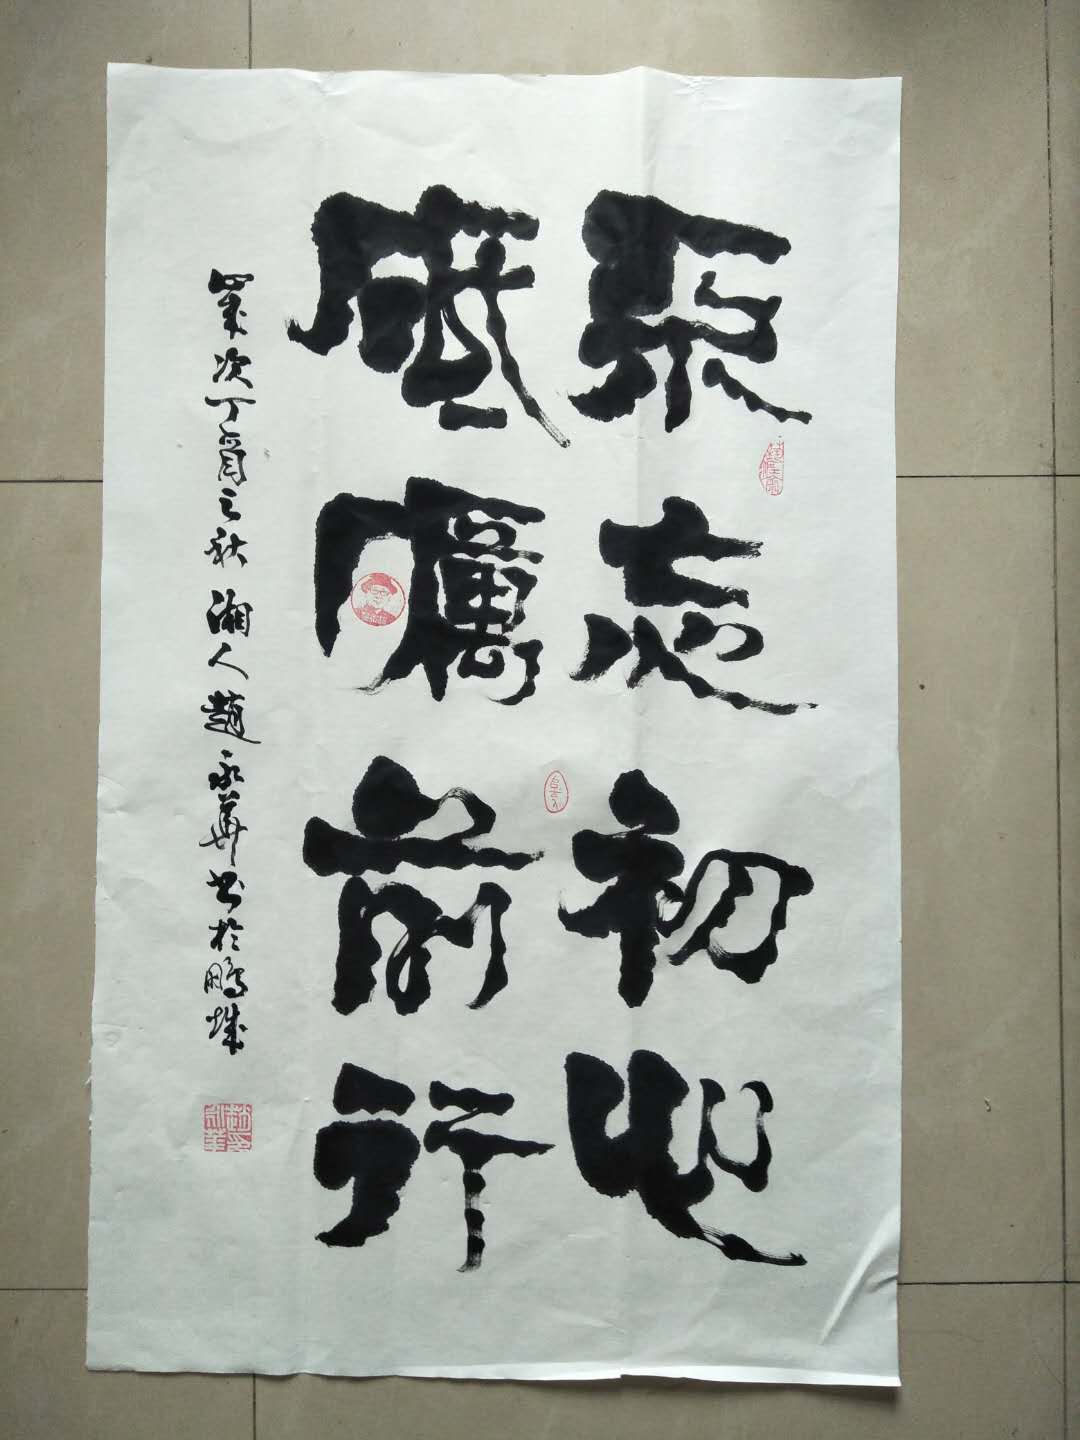 不忘初心
砥礪前行
歲次丁酉之秋 湘人趙永華书於鵬城